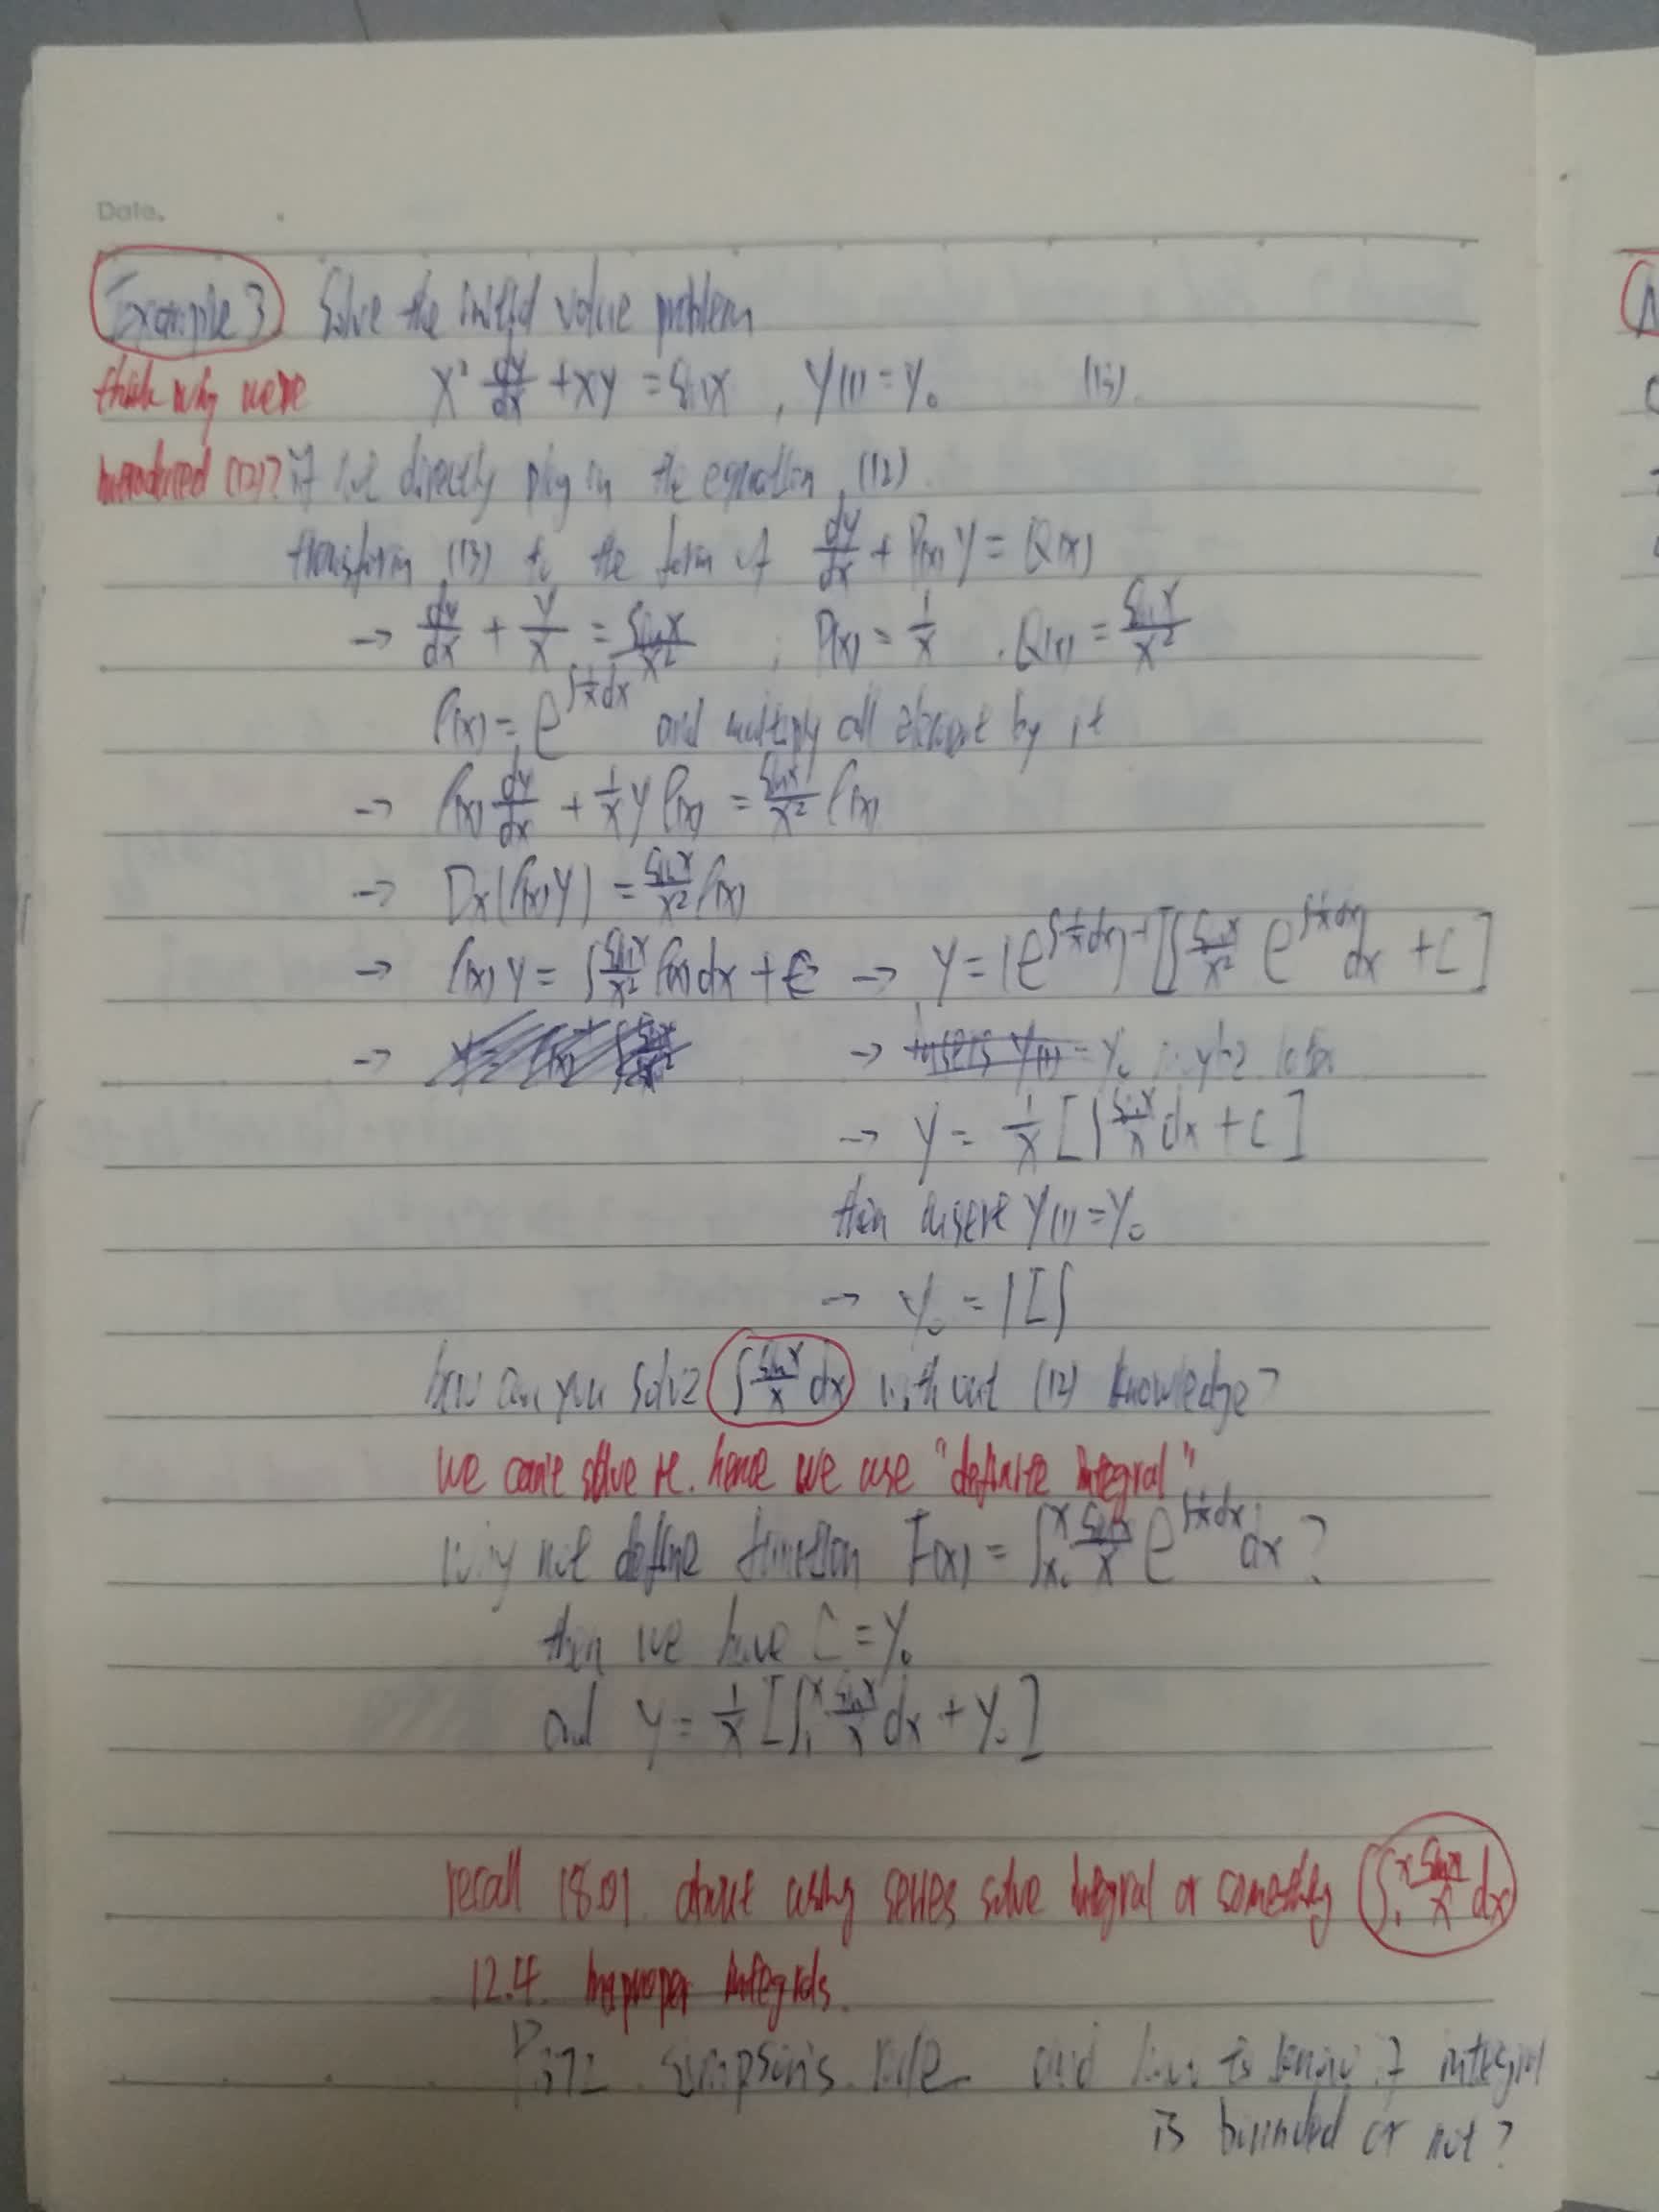 Date.
Example 3 Solve the initial value problem
think why were x² dy/dx + xy = sin x , y(1) = y₀ (13).
introduced (12)? if we directly plug in the equation (12)
transform (13) to the form of dy/dx + P(x) y = Q(x)
→ dy/dx + y/x = sin x/x² , P(x) = 1/x . Q(x) = sin x/x²
ρ(x) = e^∫1/x dx and multiply all element by it
→ ρ(x) dy/dx + 1/x y ρ(x) = sin x/x² ρ(x)
→ Dx(ρ(x) y) = sin x/x² ρ(x)
→ ρ(x) y = ∫ sin x/x² ρ(x) dx + C → y = (e^∫1/x dx)⁻¹ [∫ sin x/x² e^∫1/x dx dx + C]
→ → y(1) = y₀
→ y = 1/x [∫ sin x/x dx + C]
then insert y(1) = y₀
→ y₀ = 1 [∫
how can you solve ∫ sin x/x dx without (12) knowledge?
we can't solve it. hence we use "definite integral"
why not define function F(x) = ∫ₓ₀ˣ sin x/x e^∫1/x dx dx ?
then we have C = y₀
and y = 1/x [∫₁ˣ sin x/x dx + y₀]
recall 18.01. about using series solve integral or something ∫₁ˣ sin x/x dx
12.4. Improper integrals.
P372 simpson's rule and how to know if integral
is bounded or not?